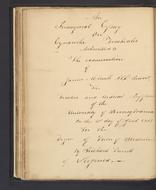 An
Inaugural Essay
On
Cynanche Trachealis
Submitted to
The examination
of
James
Trustees and Medical Professors
of the
University of Pennsylvania
On the of April
For the
Degree of Doctor of Medicine
By Richard
of Virginia